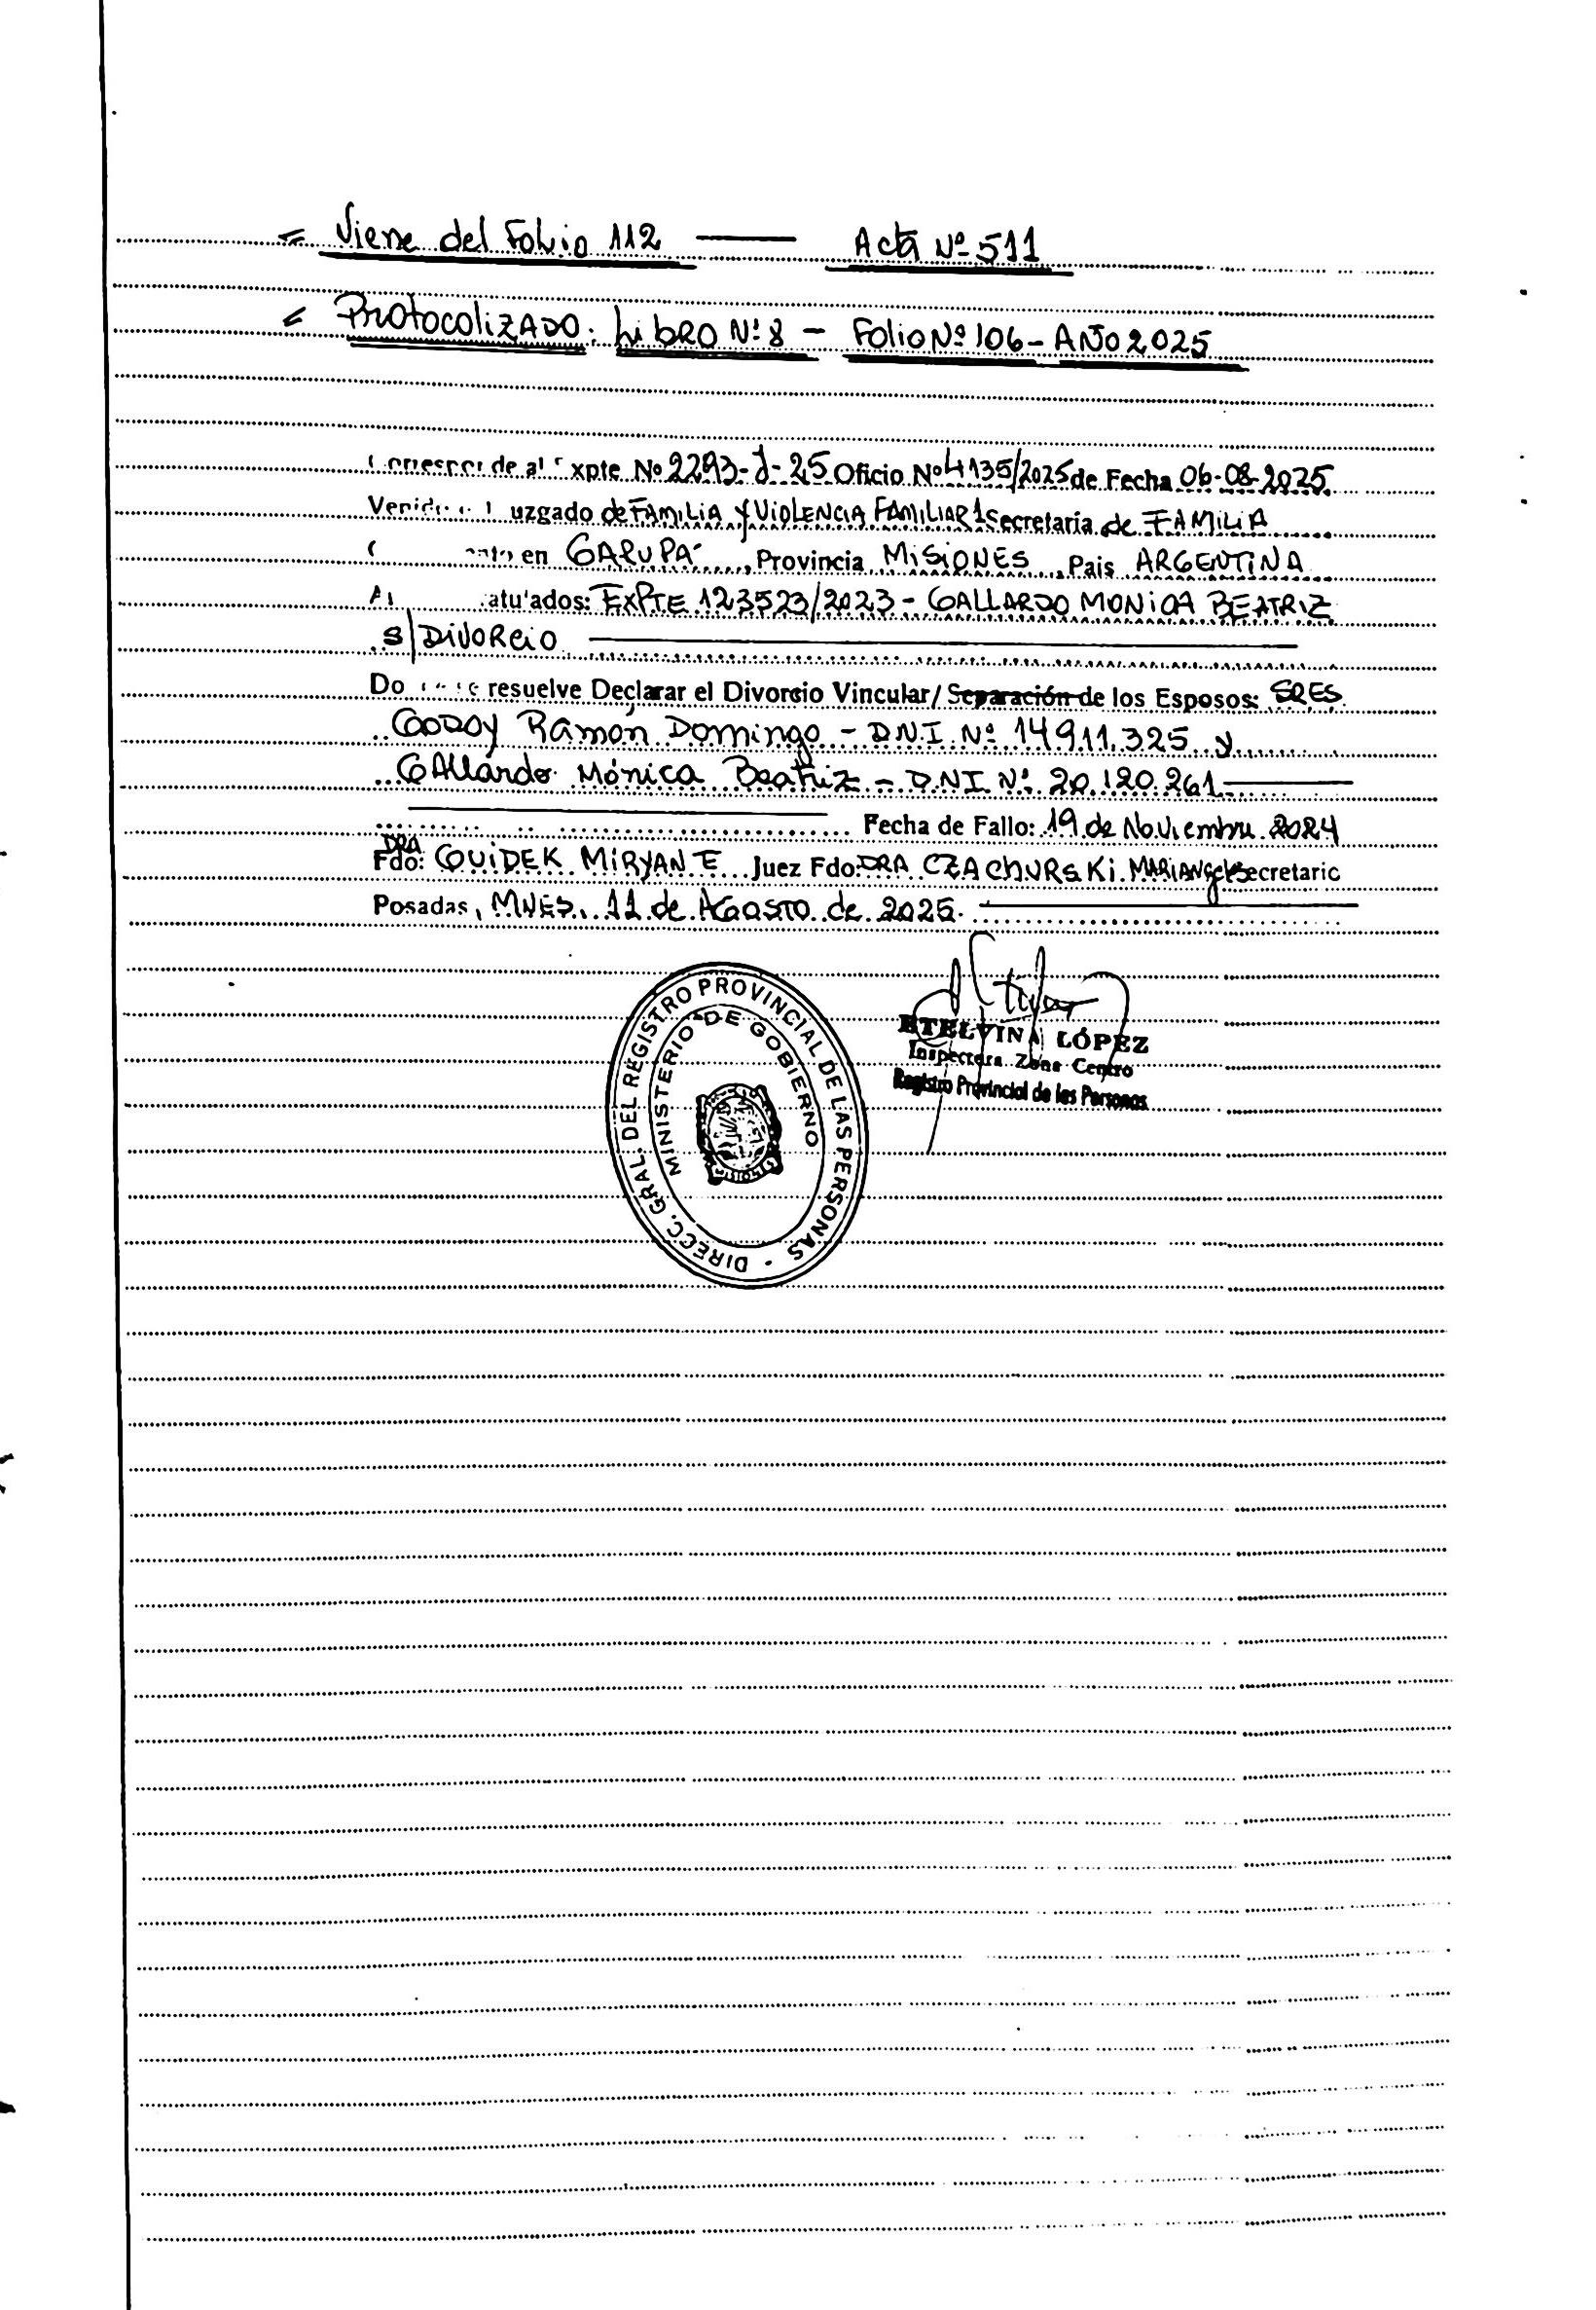 Viene del Folio 112 — Acta Nº 511
Protocolizado: Libro Nº 8 - Folio Nº 106 - Año 2025
Corresponde al Expte Nº 2293-J-25 Oficio Nº 4135/2025 de Fecha 06-08-2025
Venido uzgado de FAMILIA Y VIOLENCIA FAMILIAR 1 Secretaria de FAMILIA
en GARUPÁ, Provincia MISIONES, Pais ARGENTINA
atulados: EXPTE 123523/2023 - GALLARDO MONICA BEATRIZ
S/DIVORCIO
resuelve Declarar el Divorcio Vincular/ Separación de los Esposos: SRES
GODOY Ramón Domingo - D.N.I. Nº 14.911.325 y
GAllardo Mónica Beatriz - D.N.I. Nº 20.120.261
Fecha de Fallo: 19 de Noviembre 2024
DRA
Fdo: GUIDEK MIRYAN E. Juez Fdo: DRA CZACHURSKI MARIANgela Secretario
Posadas, MNES, 11 de AGOSTO de 2025.
ETELVINA LÓPEZ
Inspectora Zona Centro
Registro Provincial de las Personas
DIRECC. GRAL. DEL REGISTRO PROVINCIAL DE LAS PERSONAS
MINISTERIO DE GOBIERNO